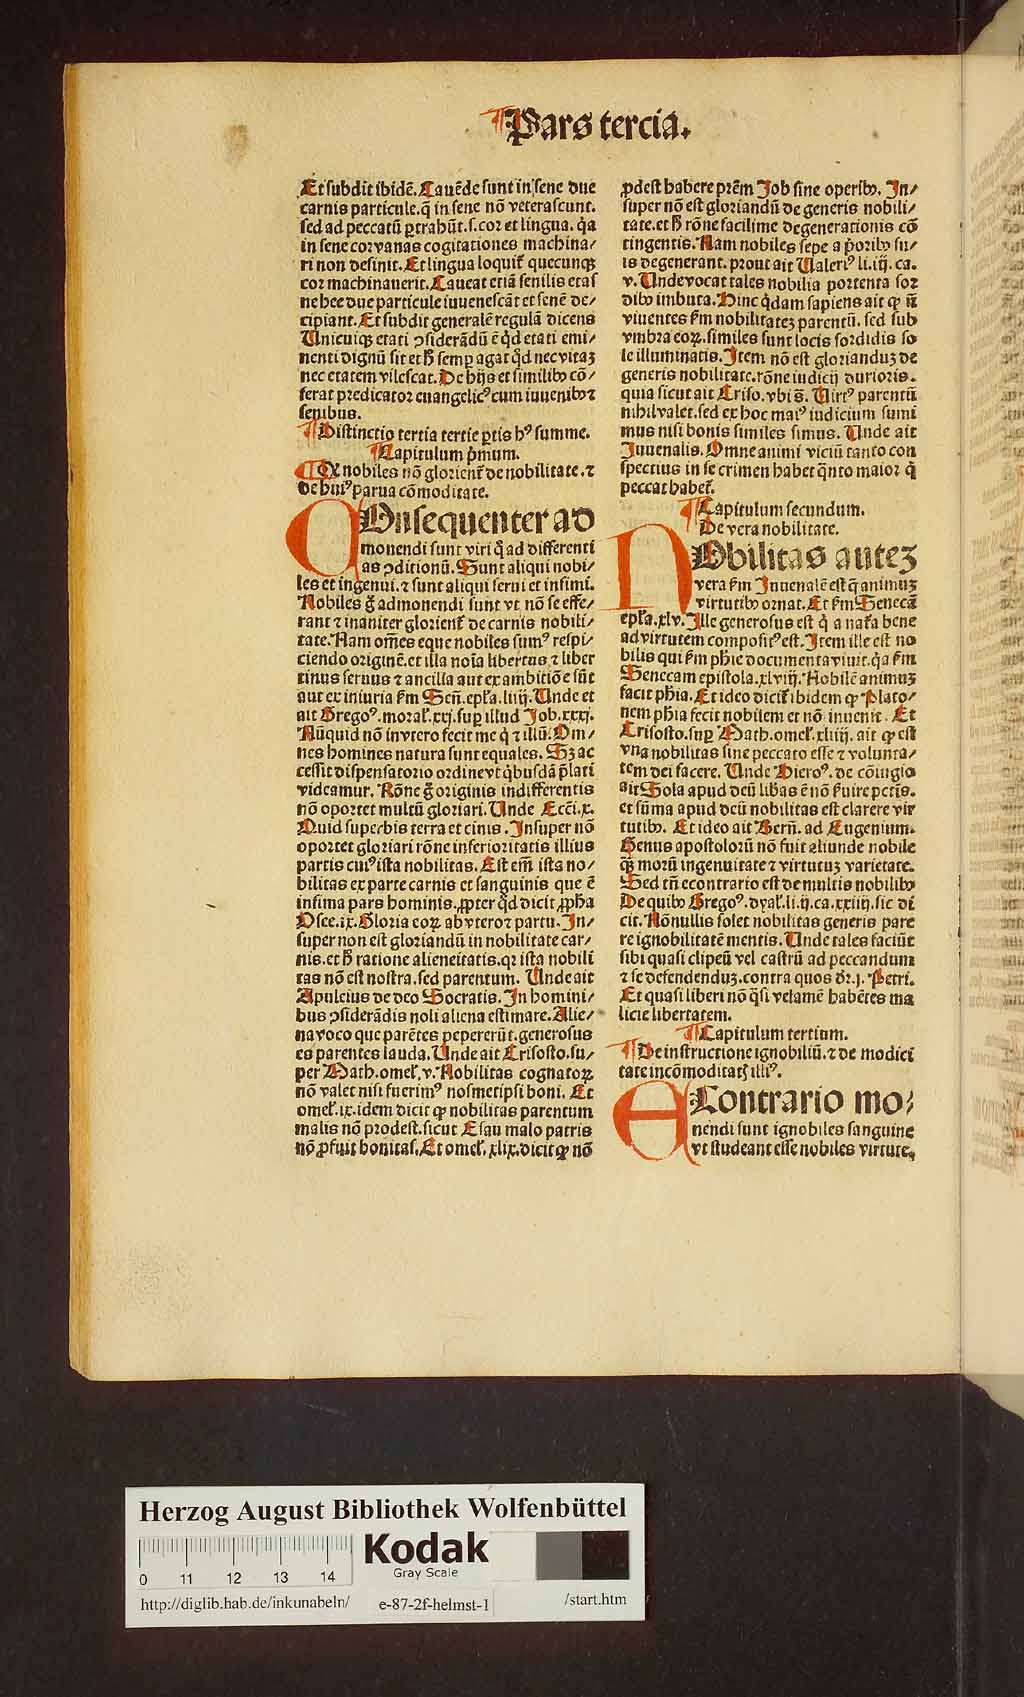 Pars tercia.
Et subdit ibidē. Cauēde sunt in sene due
carnis particule. q̄ in sene nō veterascunt.
sed ad peccatū ꝑtrahūt. s. cor et lingua. q̇a
in sene cor vanas cogitationes machina/
ri non desinit. Et lingua loquit᷑ quecunqꝫ
cor machinauerit. Caueat etiā senilis etas
ne hec due particule iuuenescāt et senē de/
cipiant. Et subdit generalē regulā dicens
Unicuiqꝫ etati ꝯsiderādū ē q̇d etati emi/
nenti dignū sit et hͦ semꝑ agat q̇d nec vitaꝫ
nec etatem vilescat. De hijs et similibꝰ cō/
ferat predicator euangelicꝰ cum iuuenibꝰ ⁊
senibus.
Distinctio tertia tertie ꝑtis hꝰ summe.
Capitulum p̄mum.
Qꝫ nobiles nō glorient᷑ de nobilitate. ⁊
de huiꝰ parua cōmoditate.
COnsequenter ad
monendi sunt viri q̇ ad differenti
as ꝯditionū. Sunt aliqui nobi/
les et ingenui. ⁊ sunt aliqui serui et infimi.
Nobiles g̊ admonendi sunt vt nō se effe/
rant ⁊ inaniter glorient᷑ de carnis nobili/
tate. Nam om̄es eque nobiles sumꝰ respi/
ciendo originē. et illa noīa libertus ⁊ liber
tinus seruus ⁊ ancilla aut ex ambitiōe sūt
aut ex iniuria ẜm Señ. epl̄a. liiij. Unde et
ait Gregoꝰ. moral᷑. xxj. suꝑ illud Job. xxxj.
Nūquid nō in vtero fecit me q̇ ⁊ illū. Om/
nes homines natura sunt equales. Sꝫ ac
cessit dispensatorio ordine vt q̇busdā p̄lati
videamur. Rōne g̊ originis indifferentis
nō oportet multū gloriari. Unde Ecci̅. x.
Quid superbis terra et cinis. Insuper nō
oportet gloriari rōne inferioritatis illius
partis cuiꝰ ista nobilitas. Est em̄ ista no/
bilitas ex parte carnis et sanguinis que ē
infima pars hominis. ꝓpter q̇d dicit ꝓpha
Osee. ix. Gloria eoꝝ ab vtero ⁊ partu. In/
super non est gloriandū in nobilitate car/
nis. et hͦ ratione alieneitatis. qꝛ ista nobili
tas nō est nostra. sed parentum. Unde ait
Apuleius de deo Socratis. In homini/
bus ꝯsiderādis noli aliena estimare. Alie/
na voco que parētes pepererūt. generosus
es parentes lauda. Unde ait Crisosto. su/
per Math. omel᷑. v. Nobilitas cognatoꝝ
nō valet nisi fuerimꝰ nosmetipsi boni. Et
omel᷑. ix. idem dicit ꝙ nobilitas parentum
malis nō prodest. sicut Esau malo patris
nō ꝓfuit bonitas. Et omel᷑. xlix. dicit ꝙ nō
ꝓdest habere pr̄em Job sine operibꝰ. In/
super nō est gloriandū de generis nobili/
tate. et hͦ rōne facilime degenerationis cō
tingentis. Nam nobiles sepe a p̄oribꝰ su/
is degenerant. prout ait Ualeriꝰ li. iij. ca.
v. Unde vocat tales nobilia portenta sor
dibꝰ imbuta. Hinc q̇dam sapiens ait ꝙ n̄
viuentes ẜm nobilitateꝫ parentū. sed sub
vmbra eoꝝ. similes sunt locis sordidis so
le illuminatis. Item nō est gloriandus de
generis nobilitate. rōne iudicij durioris.
quia sicut ait Criso. vbi s̄. Uirtꝰ parentū
nihil valet. sed ex hoc maiꝰ iudicium sumi
mus nisi bonis similes simus. Unde ait
Juuenalis. Omne animi viciū tanto con
spectius in se crimen habet q̄nto maior q̇
peccat habet᷑.
Capitulum secundum.
De vera nobilitate.
NObilitas auteꝫ
vera ẜm Juuenalē est q̄ animuꝫ
virtutibꝰ ornat. Et ẜm Senecā
epl̄a. xlv. Ille generosus est q̇ a nat᷑a bene
ad virtutem compositꝰ est. Item ille est no
bilis qui ẜm ph̄ie documenta viuit. q̇a ẜm
Senecam epistola. xlviij. Nobilē animuꝫ
facit ph̄ia. Et ideo dicit᷑ ibidem ꝙ Plato/
nem ph̄ia fecit nobilem et nō inuenit. Et
Crisosto. suꝑ Math. omel᷑. xliiij. ait ꝙ est
vna nobilitas sine peccato esse ⁊ volunta/
tem dei facere. Unde Hieroꝰ. de cōiugio
ait Sola apud deū lib̄as ē nō ẜuire pctīs.
et sūma apud deū nobilitas est clarere vir
tutibꝰ. Et ideo ait Bern̄. ad Eugenium.
Genus apostolorū nō fuit aliunde nobile
qꝫ morū ingenuitate ⁊ virtutuꝫ varietate.
Sed tn̄ econtrario est de multis nobilibꝰ
De quibꝰ Gregoꝰ. dyal᷑. li. ij. ca. xxiij. sic di
cit. Nōnullis solet nobilitas generis pare
re ignobilitatē mentis. Unde tales faciūt
sibi quasi clipeū vel castrū ad peccandum
⁊ se defendenduꝫ. contra quos dr̄. j. Petri.
Et quasi liberi nō q̇si velamē habētes ma
licie libertatem.
Capitulum tertium.
De instructione ignobiliū. ⁊ de modici
tate incōmoditatꝭ illiꝰ.
E Contrario mo/
nendi sunt ignobiles sanguine
vt studeant esse nobiles virtute.
Herzog August Bibliothek Wolfenbüttel
Kodak
Gray Scale
0 11 12 13 14
http://diglib.hab.de/inkunabeln/ e-87-2f-helmst-1 /start.htm